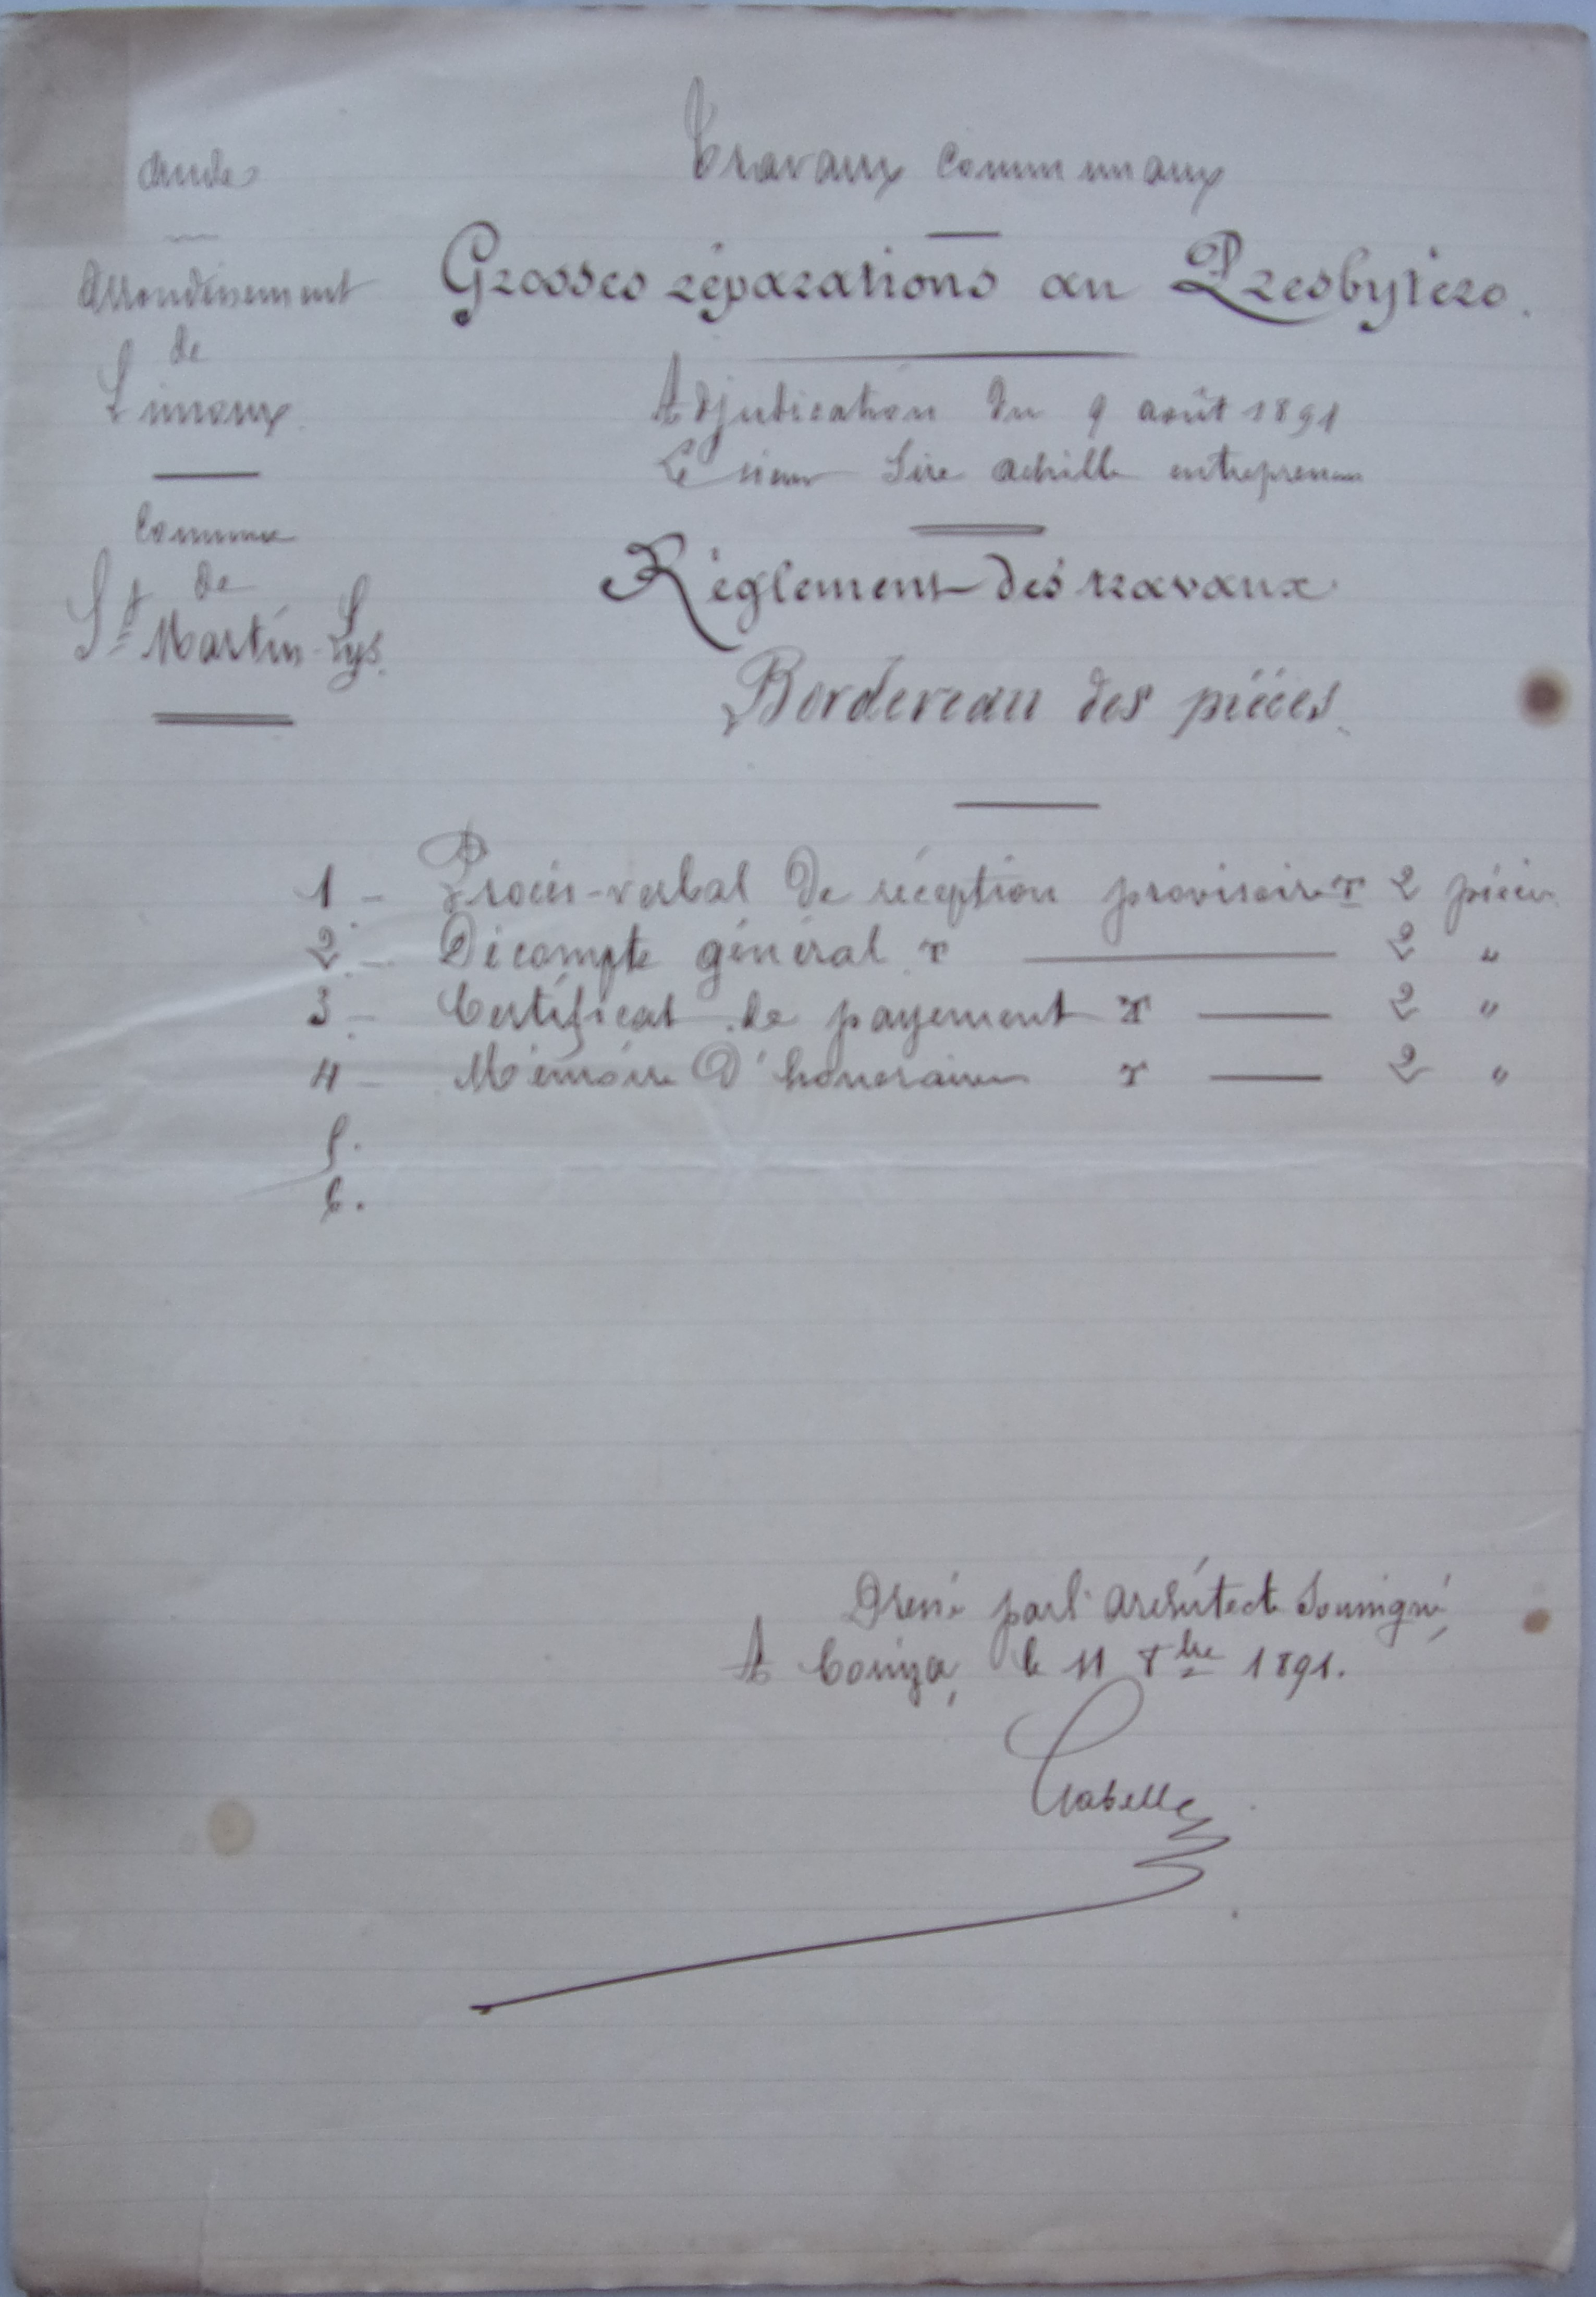 Aude
Arrondissement
de
Limoux
Commune
de
St Martin-Lys.
Travaux Communaux
Grosses réparations au Presbytère.
Adjudication du 9 août 1891
Le sieur Sire Achille entrepreneur
Règlement des travaux
Bordereau des pièces.
1 - Procès-verbal de réception provisoire 2 pièces
2. - Décompte général 2 "
3 - Certificat de payement 2 "
4 - Mémoire d'honoraires 2 "
5.
6.
Dressé par l'architecte soussigné,
A Couiza, le 11 8bre 1891.